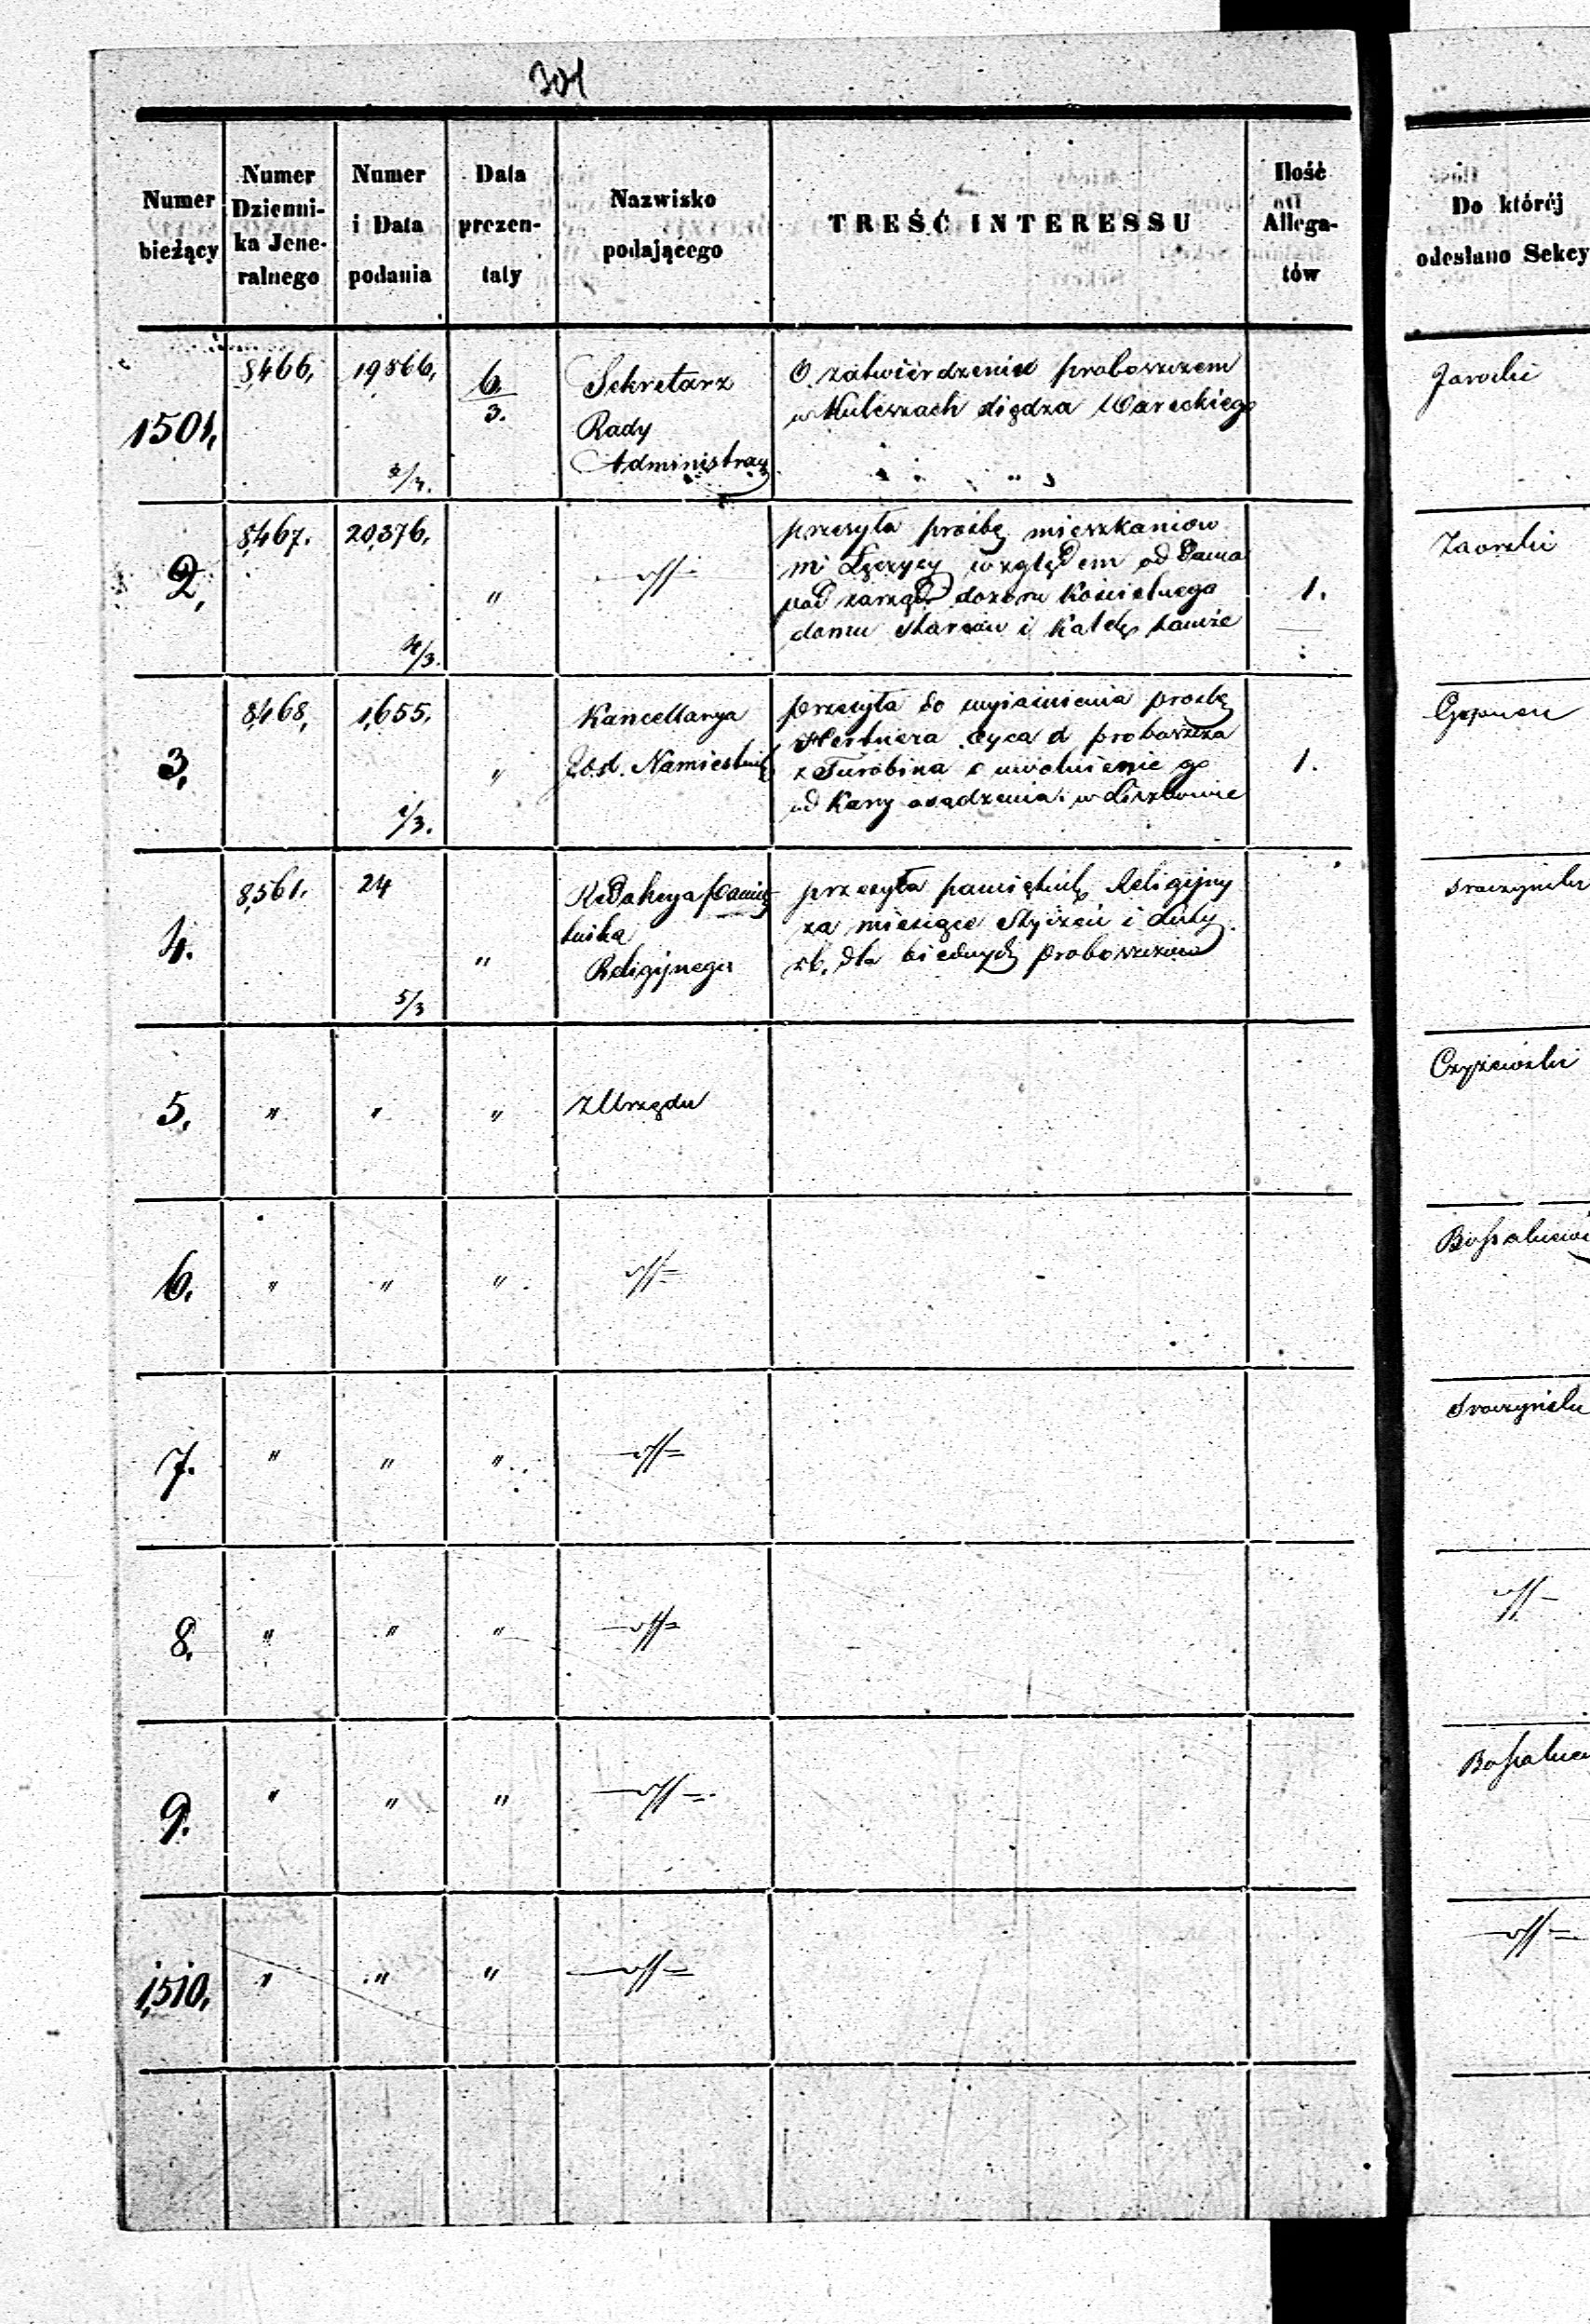 301
Numer bieżący
Numer Dzienni-ka Jene-ralnego
Numer i Data podania
Data prezen-taty
Nazwisko podającego
TREŚĆ INTERESSU
Ilość Allega-tów
Do którėj odesłano Sekcy
1501,
8,466,
19866,
6/3.
Sekretarz
Rady
Administracy
O zatwierdzeniu proboszczem
w Kuleszach Xiędza Wareckiego
2,
8,467.
20,376.
4/3.
"
przesyła prośbę mieszkaniow
m Łęczycy względem od Dania
pod zarząd dozoru Kościelnego
domu starców i Kaled tamże
1.
3,
8,468,
1,655.
1/3.
"
Kancellarya
J.O.X. Namiestnik
przesyła do wyjaśnienia prośbę
proboszcza
z Turobina o uwolnienie go
od Kary osądzenia w
1.
4.
8,561.
24
5/3
"
Redakcya Pamię
tnika
Religijnego
przesyła pamiętnik Religijny
za miesiące Styczeń i Luty
rb. dla biednych proboszczów
5.
"
"
"
Z Urzędu
Czyżewski
6.
"
"
"
7.
"
"
"
8.
"
"
"
9.
"
"
"
1,510.
"
"
"